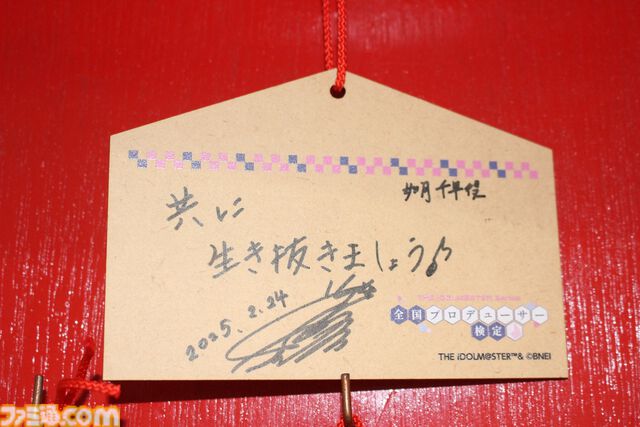 如月千早役
共に
生き抜きましょう♪
2025.2.24
全国プロデューサー
検定
THE IDOLM@STER™& ©BNEI
ファミ通.com